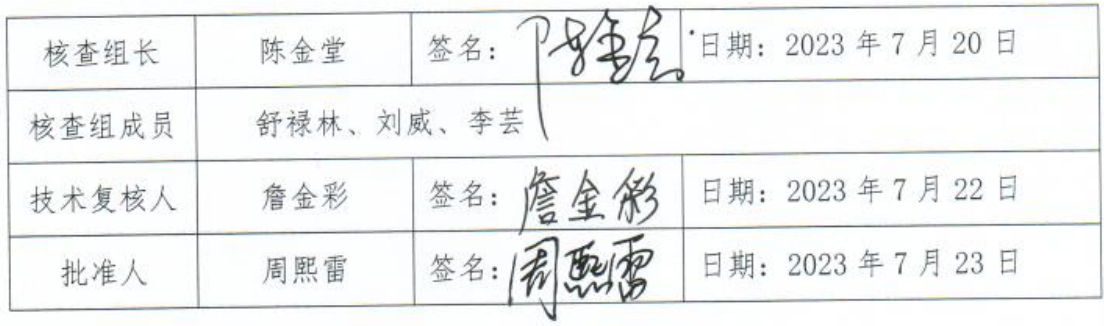 核查组长 陈金堂 签名： 陈金堂 日期：2023 年 7 月 20 日
核查组成员 舒禄林、刘威、李芸
技术复核人 詹金彩 签名： 詹金彩 日期：2023 年 7 月 22 日
批准人 周熙雷 签名： 周熙雷 日期：2023 年 7 月 23 日